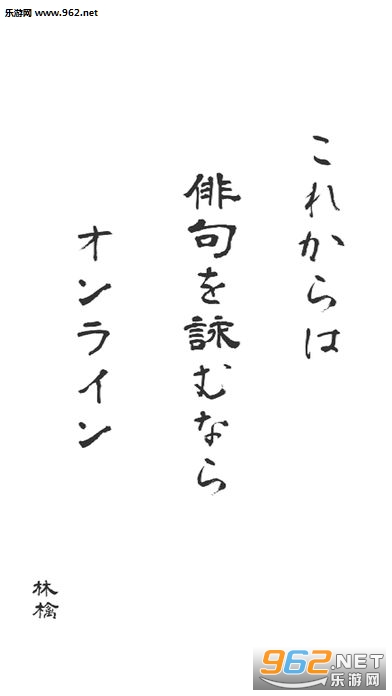 乐游网 www.962.net
これからは
俳句を詠むなら
オンライン
林檎
962.NET
乐游网